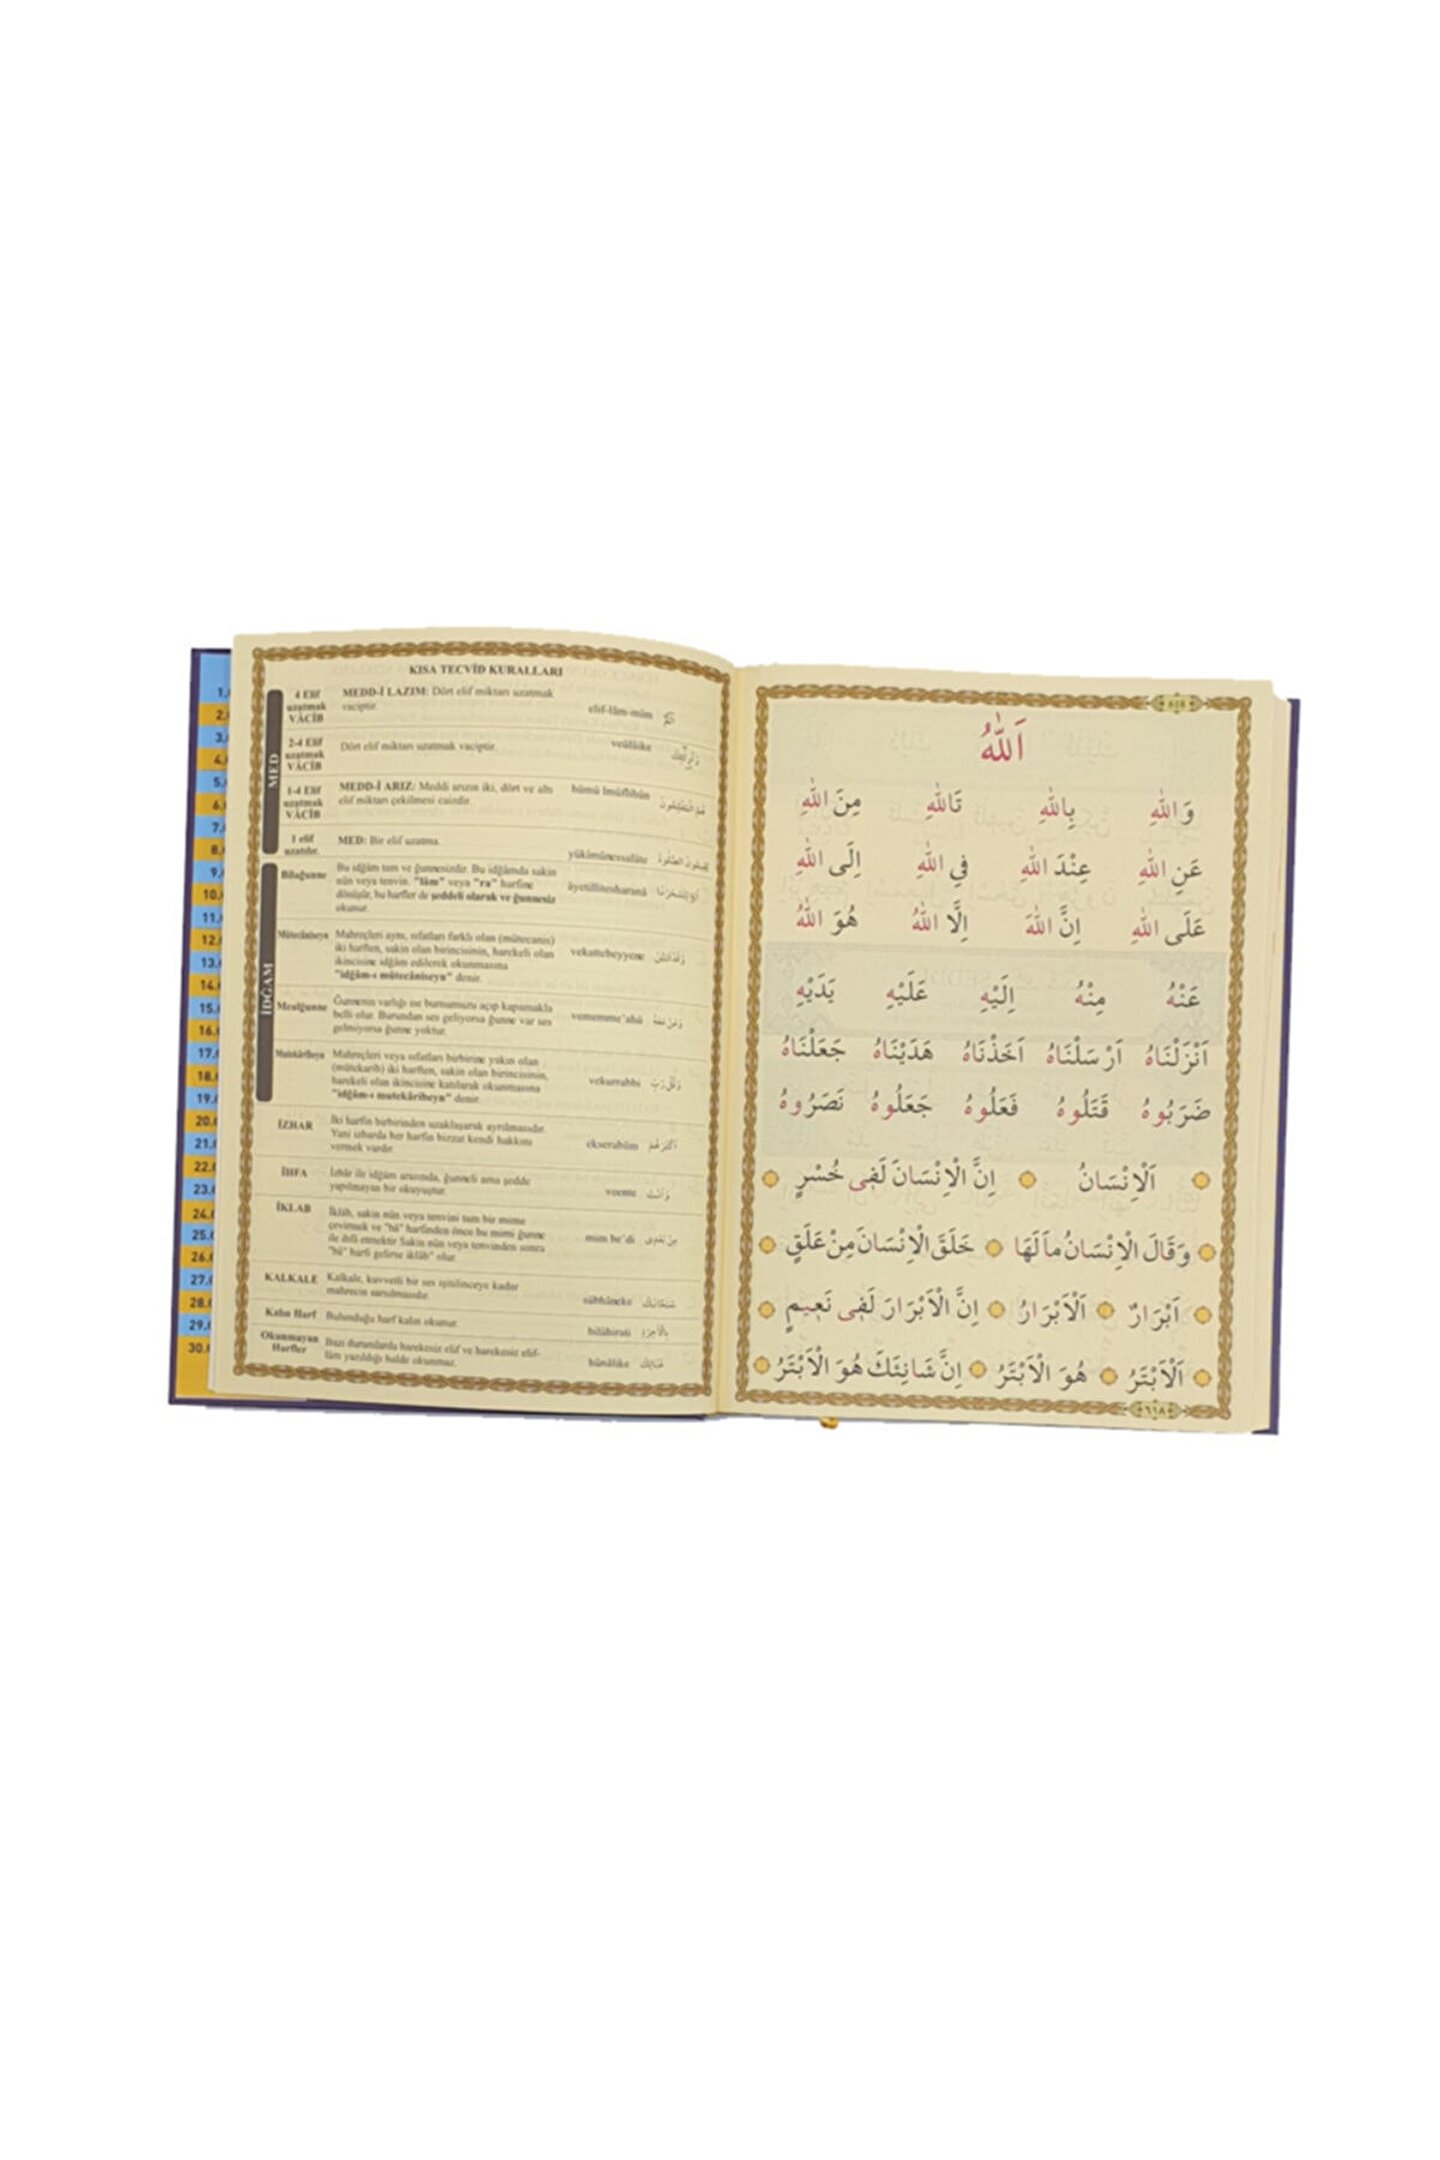 KISA TECVÎD KURALLARI
MED
4 Elif uzatmak VÂCİB
MEDD-İ LAZIM: Dört elif miktarı uzatmak
vaciptir.
elif-lâm-mim
2-4 Elif uzatmak VÂCİB
Dört elif miktarı uzatmak vaciptir.
veülâike
1-4 Elif uzatmak VÂCİB
MEDD-İ ARIZ: Meddi arızın iki, dört ve altı
elif miktarı çekilmesi caizdir.
1 elif uzatılır.
MED: Bir elif uzatma.
yükîmûnessalâte
İDĞAM
Bilağunne
Bu idğâm tam ve ğunnesizdir. Bu idğâmda sakin
nûn veya tenvin. "lâm" veya "ra" harfine
dönüşür, bu harfler de şeddeli olarak ve ğunnesiz
okunur.
Mütecâniseyn
Mahreçleri aynı, sıfatları farklı olan (mütecanis)
iki harften, sakin olan birincisinin, harekeli olan
ikincisine idğâm edilerek okunmasına
"idğâm-ı mütecâniseyn" denir.
vekattebeyyene
Mealğunne
Ğunnenin varlığı ise burnumuzu açıp kapamakla
belli olur. Burundan ses geliyorsa ğunne var ses
gelmiyorsa ğunne yoktur.
vememme'ahü
Mutekâribeyn
Mahreçleri veya sıfatları birbirine yakın olan
(mütekarib) iki harften, sakin olan birincisinin,
harekeli olan ikincisine katılarak okunmasına
"idğâm-ı mutekâribeyn" denir.
vekurrabbi
İZHAR
İki harfin birbirinden uzaklaşarak ayrılmasıdır.
Yani izharda her harfin bizzat kendi hakkını
vermek vardır.
ekserahüm
İHFA
İzhâr ile idğâm arasında, ğunneli ama şedde
yapılmayan bir okuyuştur.
veente
İKLAB
İklâb, sakin nûn veya tenvini tam bir mime
çevirmek ve "bâ" harfinden önce bu mimi ğunne
ile ihfâ etmektir Sakin nûn veya tenvinden sonra
"bâ" harfi gelirse iklâb" olur.
mim be'di
KALKALE
Kalkale, kuvvetli bir ses işitilinceye kadar
mahrecin sarsılmasıdır.
sübhâneke
Kalın Harf
Bulunduğu harf kalın okunur.
bilâhirati
Okunmayan Harfler
Bazı durumlarda harekesiz elif ve harekesiz elif-
lâm yazıldığı halde okunmaz.
hünâlike
اَللّٰهُ
وَ اللّٰهِ بِاللّٰهِ تَاللّٰهِ مِنَ اللّٰهِ
عَنِ اللّٰهِ عِنْدَ اللّٰهِ فِي اللّٰهِ اِلَى اللّٰهِ
عَلَى اللّٰهِ اِنَّ اللّٰهَ اِلَّا اللّٰهُ هُوَ اللّٰهُ
عَنْهُ مِنْهُ اِلَيْهِ عَلَيْهِ يَدَيْهِ
اَنْزَلْنَاهُ اَرْسَلْنَاهُ اَخَذْنَاهُ هَدَيْنَاهُ جَعَلْنَاهُ
ضَرَبُوهُ قَتَلُوهُ فَعَلُوهُ جَعَلُوهُ نَصَرُوهُ
اَلْاِنْسَانُ اِنَّ الْاِنْسَانَ لَفِى خُسْرٍ
وَقَالَ الْاِنْسَانُ مَا لَهَا خَلَقَ الْاِنْسَانَ مِنْ عَلَقٍ
اَبْرَارٌ اَلْاَبْرَارُ اِنَّ الْاَبْرَارَ لَفِى نَعِيمٍ
اَلْاَبْتَرُ هُوَ الْاَبْتَرُ اِنَّ شَانِئَكَ هُوَ الْاَبْتَرُ
٦١٨